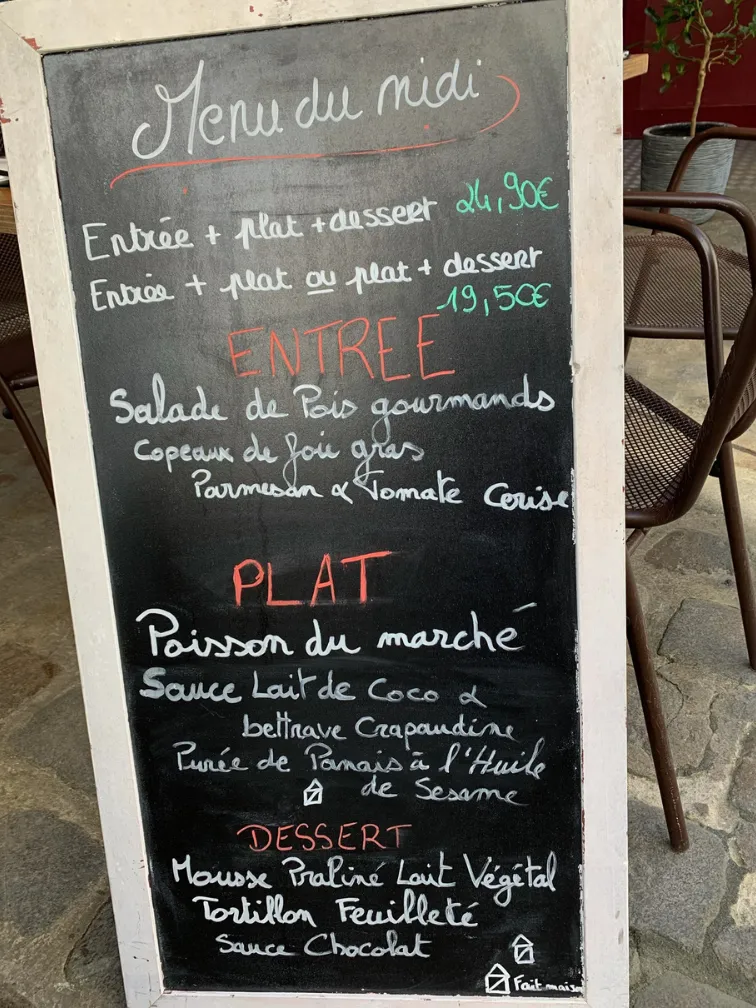 Menu du midi
Entrée + plat + dessert 24,90€
Entrée + plat ou plat + dessert
19,50€
ENTREE
Salade de Pois gourmands
Copeaux de foie gras
Parmesan & Tomate Cerise
PLAT
Poisson du marché
Sauce Lait de Coco &
bettrave Crapaudine
Purée de Panais à l'Huile
de Sesame
DESSERT
Mousse Praliné Lait Végétal
Tortillon Feuilleté
Sauce Chocolat
Fait maison